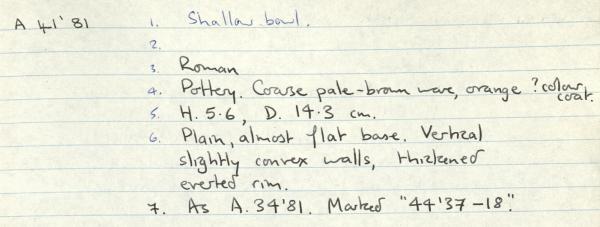 A 41'81 1. Shallow bowl.
2.
3. Roman
4. Pottery. Coarse pale-brown ware, orange ?colour coat.
5. H. 5·6, D. 14·3 cm.
6. Plain, almost flat base. Vertical
slightly convex walls, thickened
everted rim.
7. As A.34'81. Marked "44'37-18".